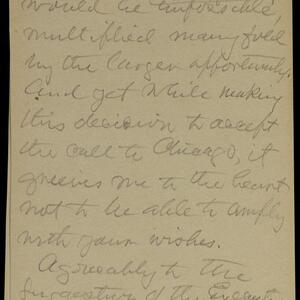 would be impossible,
multiplied manyfold
by the larger opportunity.
And yet while making
this decision to accept
the call to Chicago, it
grieves me to the heart
not to be able to comply
with your wishes.
Agreeably to the
suggestion of the